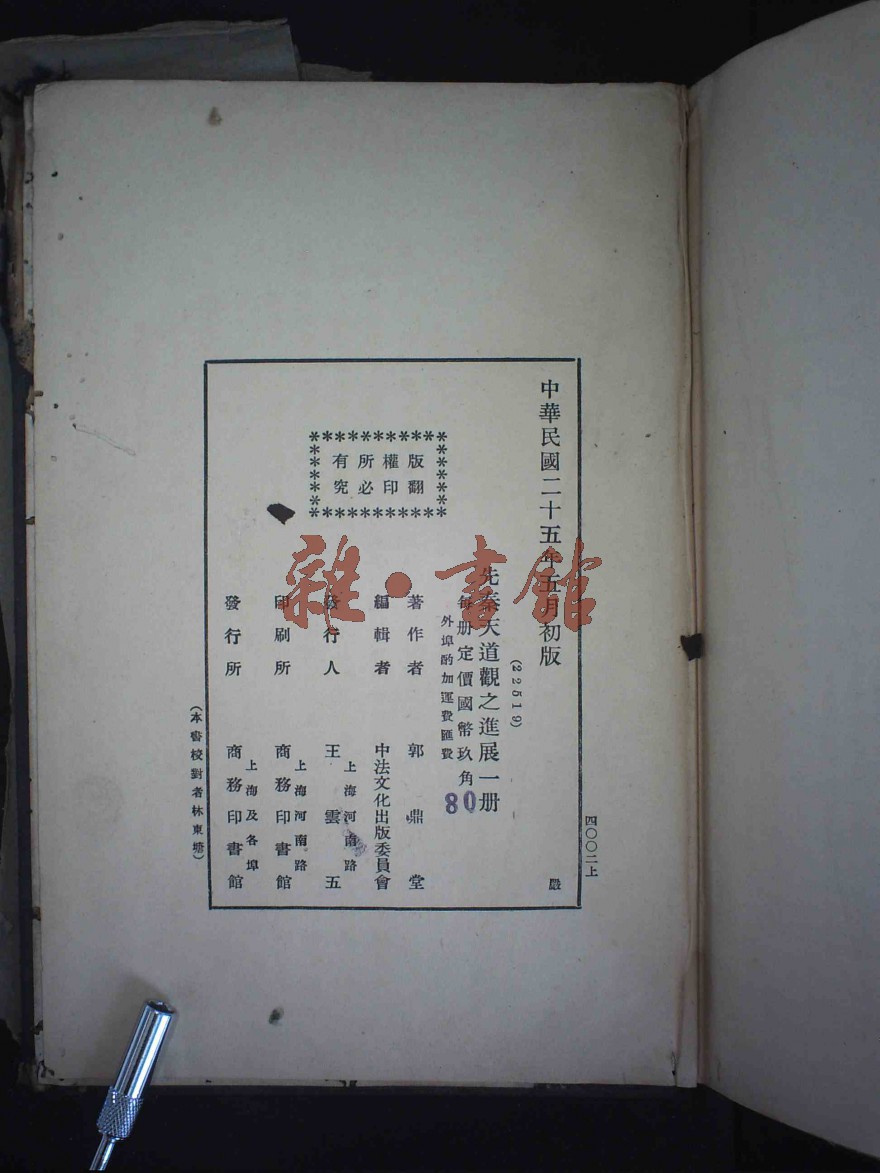 四〇〇二上
中華民國二十五年五月初版
嚴
(22519)
先秦天道觀之進展一册
每册定價國幣玖角
80
外埠酌加運費匯費
版權所有
翻印必究
著作者 郭鼎堂
編輯者 中法文化出版委員會
發行人 王雲五
上海河南路
印刷所 商務印書館
上海河南路
發行所 商務印書館
上海及各埠
(本書校對者林東塘)
雜·書館